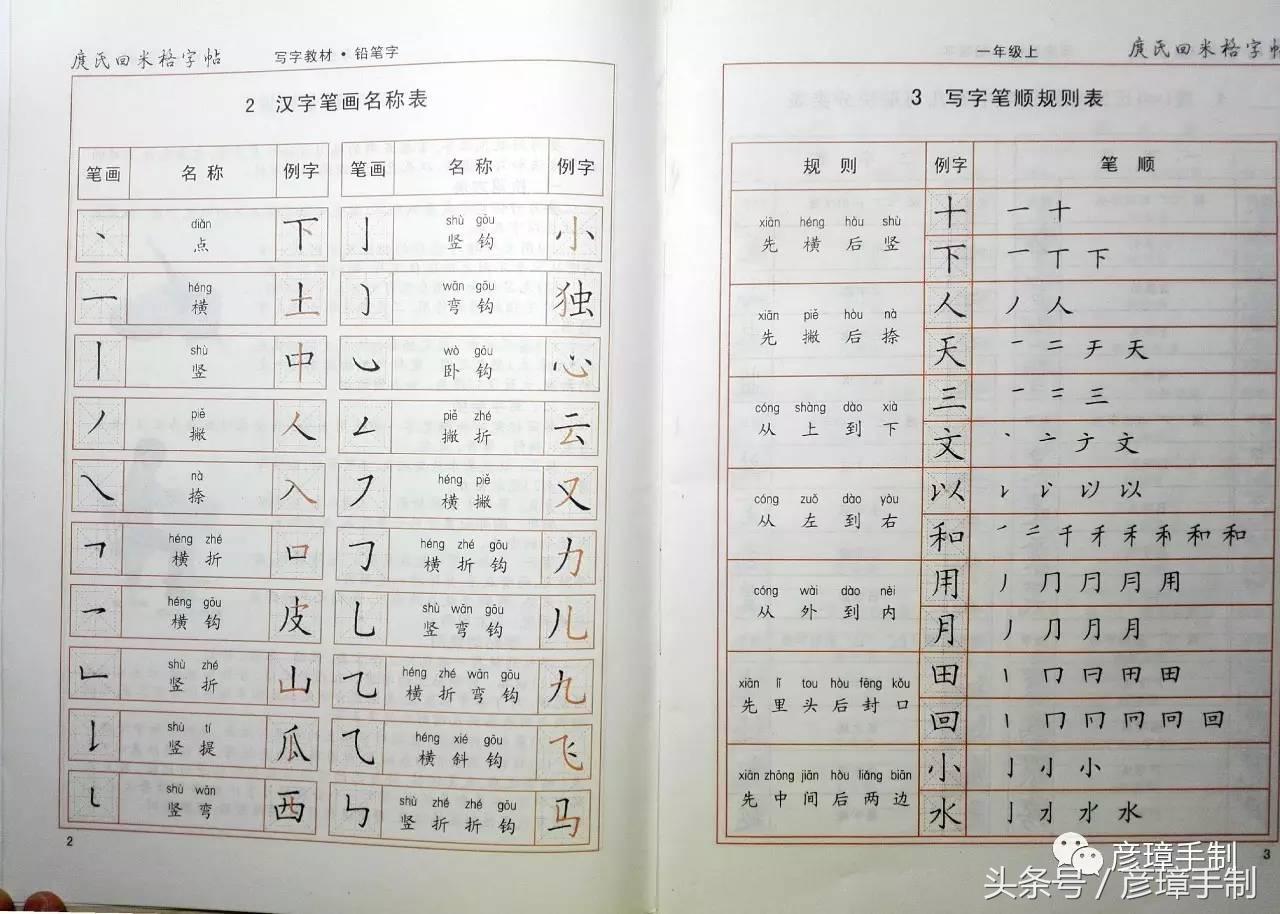 庹氏回米格字帖 写字教材·铅笔字
2 汉字笔画名称表
笔画 名称 例字 笔画 名称 例字
diǎn shù gōu
丶 点 下 亅 竖钩 小
héng wān gōu
一 横 土 弯钩 独
shù wò gōu
丨 竖 中 卧钩 心
piě piě zhé
丿 撇 人 𠃋 撇折 云
nà héng piě
㇏ 捺 入 ㇇ 横撇 又
héng zhé héng zhé gōu
𠃍 横折 口 ㇆ 横折钩 力
héng gōu shù wān gōu
乛 横钩 皮 乚 竖弯钩 儿
shù zhé héng zhé wān gōu
𠃊 竖折 山 ㇈ 横折弯钩 九
shù tí héng xié gōu
㇙ 竖提 瓜 ⺄ 横斜钩 飞
shù wān shù zhé zhé gōu
㇄ 竖弯 西 ㇉ 竖折折钩 马
2
一年级上 庹氏回米格字帖
3 写字笔顺规则表
规则 例字 笔顺
xiān héng hòu shù
先横后竖
十 一 十
下 一 丅 下
xiān piě hòu nà
先撇后捺
人 丿 人
天 一 二 天
cóng shàng dào xià
从上到下
三 一 二 三
文 丶 亠 文
cóng zuǒ dào yòu
从左到右
以 以
和 一 二 千 禾 和
cóng wài dào nèi
从外到内
用 丿 冂 月 用
月 丿 月
xiān lǐ tou hòu fēng kǒu
先里头后封口
田 丨 冂 田
回 丨 冂 回
xiān zhōng jiān hòu liǎng biān
先中间后两边
小 亅 小
水 亅 水
3
彦璋手制
头条号/彦璋手制